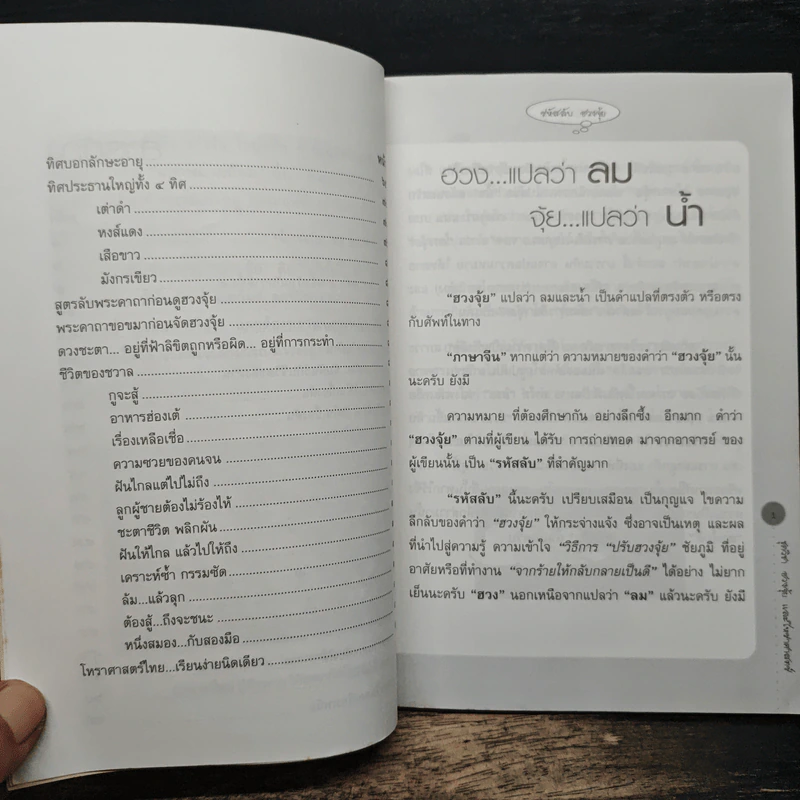 ทิศบอกลักษะอายุ
ทิศประธานใหญ่ทั้ง ๔ ทิศ
เต่าดำ
หงส์แดง
เสือขาว
มังกรเขียว
สูตรลับพระคาถาก่อนดูฮวงจุ้ย
พระคาถาขอขมาก่อนจัดฮวงจุ้ย
ดวงชะตา... อยู่ที่ฟ้าลิขิตถูกหรือผิด... อยู่ที่การกระทำ
ชีวิตของชวาล
กูจะสู้
อาหารฮ่องเต้
เรื่องเหลือเชื่อ
ความซวยของคนจน
ฝันไกลแต่ไปไม่ถึง
ลูกผู้ชายต้องไม่ร้องไห้
ชะตาชีวิต พลิกผัน
ฝันให้ไกล แล้วไปให้ถึง
เคราะห์ซ้ำ กรรมซัด
ล้ม...แล้วลุก
ต้องสู้...ถึงจะชนะ
หนึ่งสมอง...กับสองมือ
โหราศาสตร์ไทย...เรียนง่ายนิดเดียว
รหัสลับ ฮวงจุ้ย
ฮวง...แปลว่า ลม
จุ้ย...แปลว่า น้ำ
“ฮวงจุ้ย” แปลว่า ลมและน้ำ เป็นคำแปลที่ตรงตัว หรือตรง
กับศัพท์ในทาง
“ภาษาจีน” หากแต่ว่า ความหมายของคำว่า “ฮวงจุ้ย” นั้น
นะครับ ยังมี
ความหมาย ที่ต้องศึกษากัน อย่างลึกซึ้ง อีกมาก คำว่า
“ฮวงจุ้ย” ตามที่ผู้เขียน ได้รับ การถ่ายทอด มาจากอาจารย์ ของ
ผู้เขียนนั้น เป็น “รหัสลับ” ที่สำคัญมาก
“รหัสลับ” นี้นะครับ เปรียบเสมือน เป็นกุญแจ ไขความ
ลึกลับของคำว่า “ฮวงจุ้ย” ให้กระจ่างแจ้ง ซึ่งอาจเป็นเหตุ และผล
ที่นำไปสู่ความรู้ ความเข้าใจ “วิธีการ “ปรับฮวงจุ้ย” ชัยภูมิ ที่อยู่
อาศัยหรือที่ทำงาน “จากร้ายให้กลับกลายเป็นดี” ได้อย่าง ไม่ยาก
เย็นนะครับ “ฮวง” นอกเหนือจากแปลว่า “ลม” แล้วนะครับ ยังมี